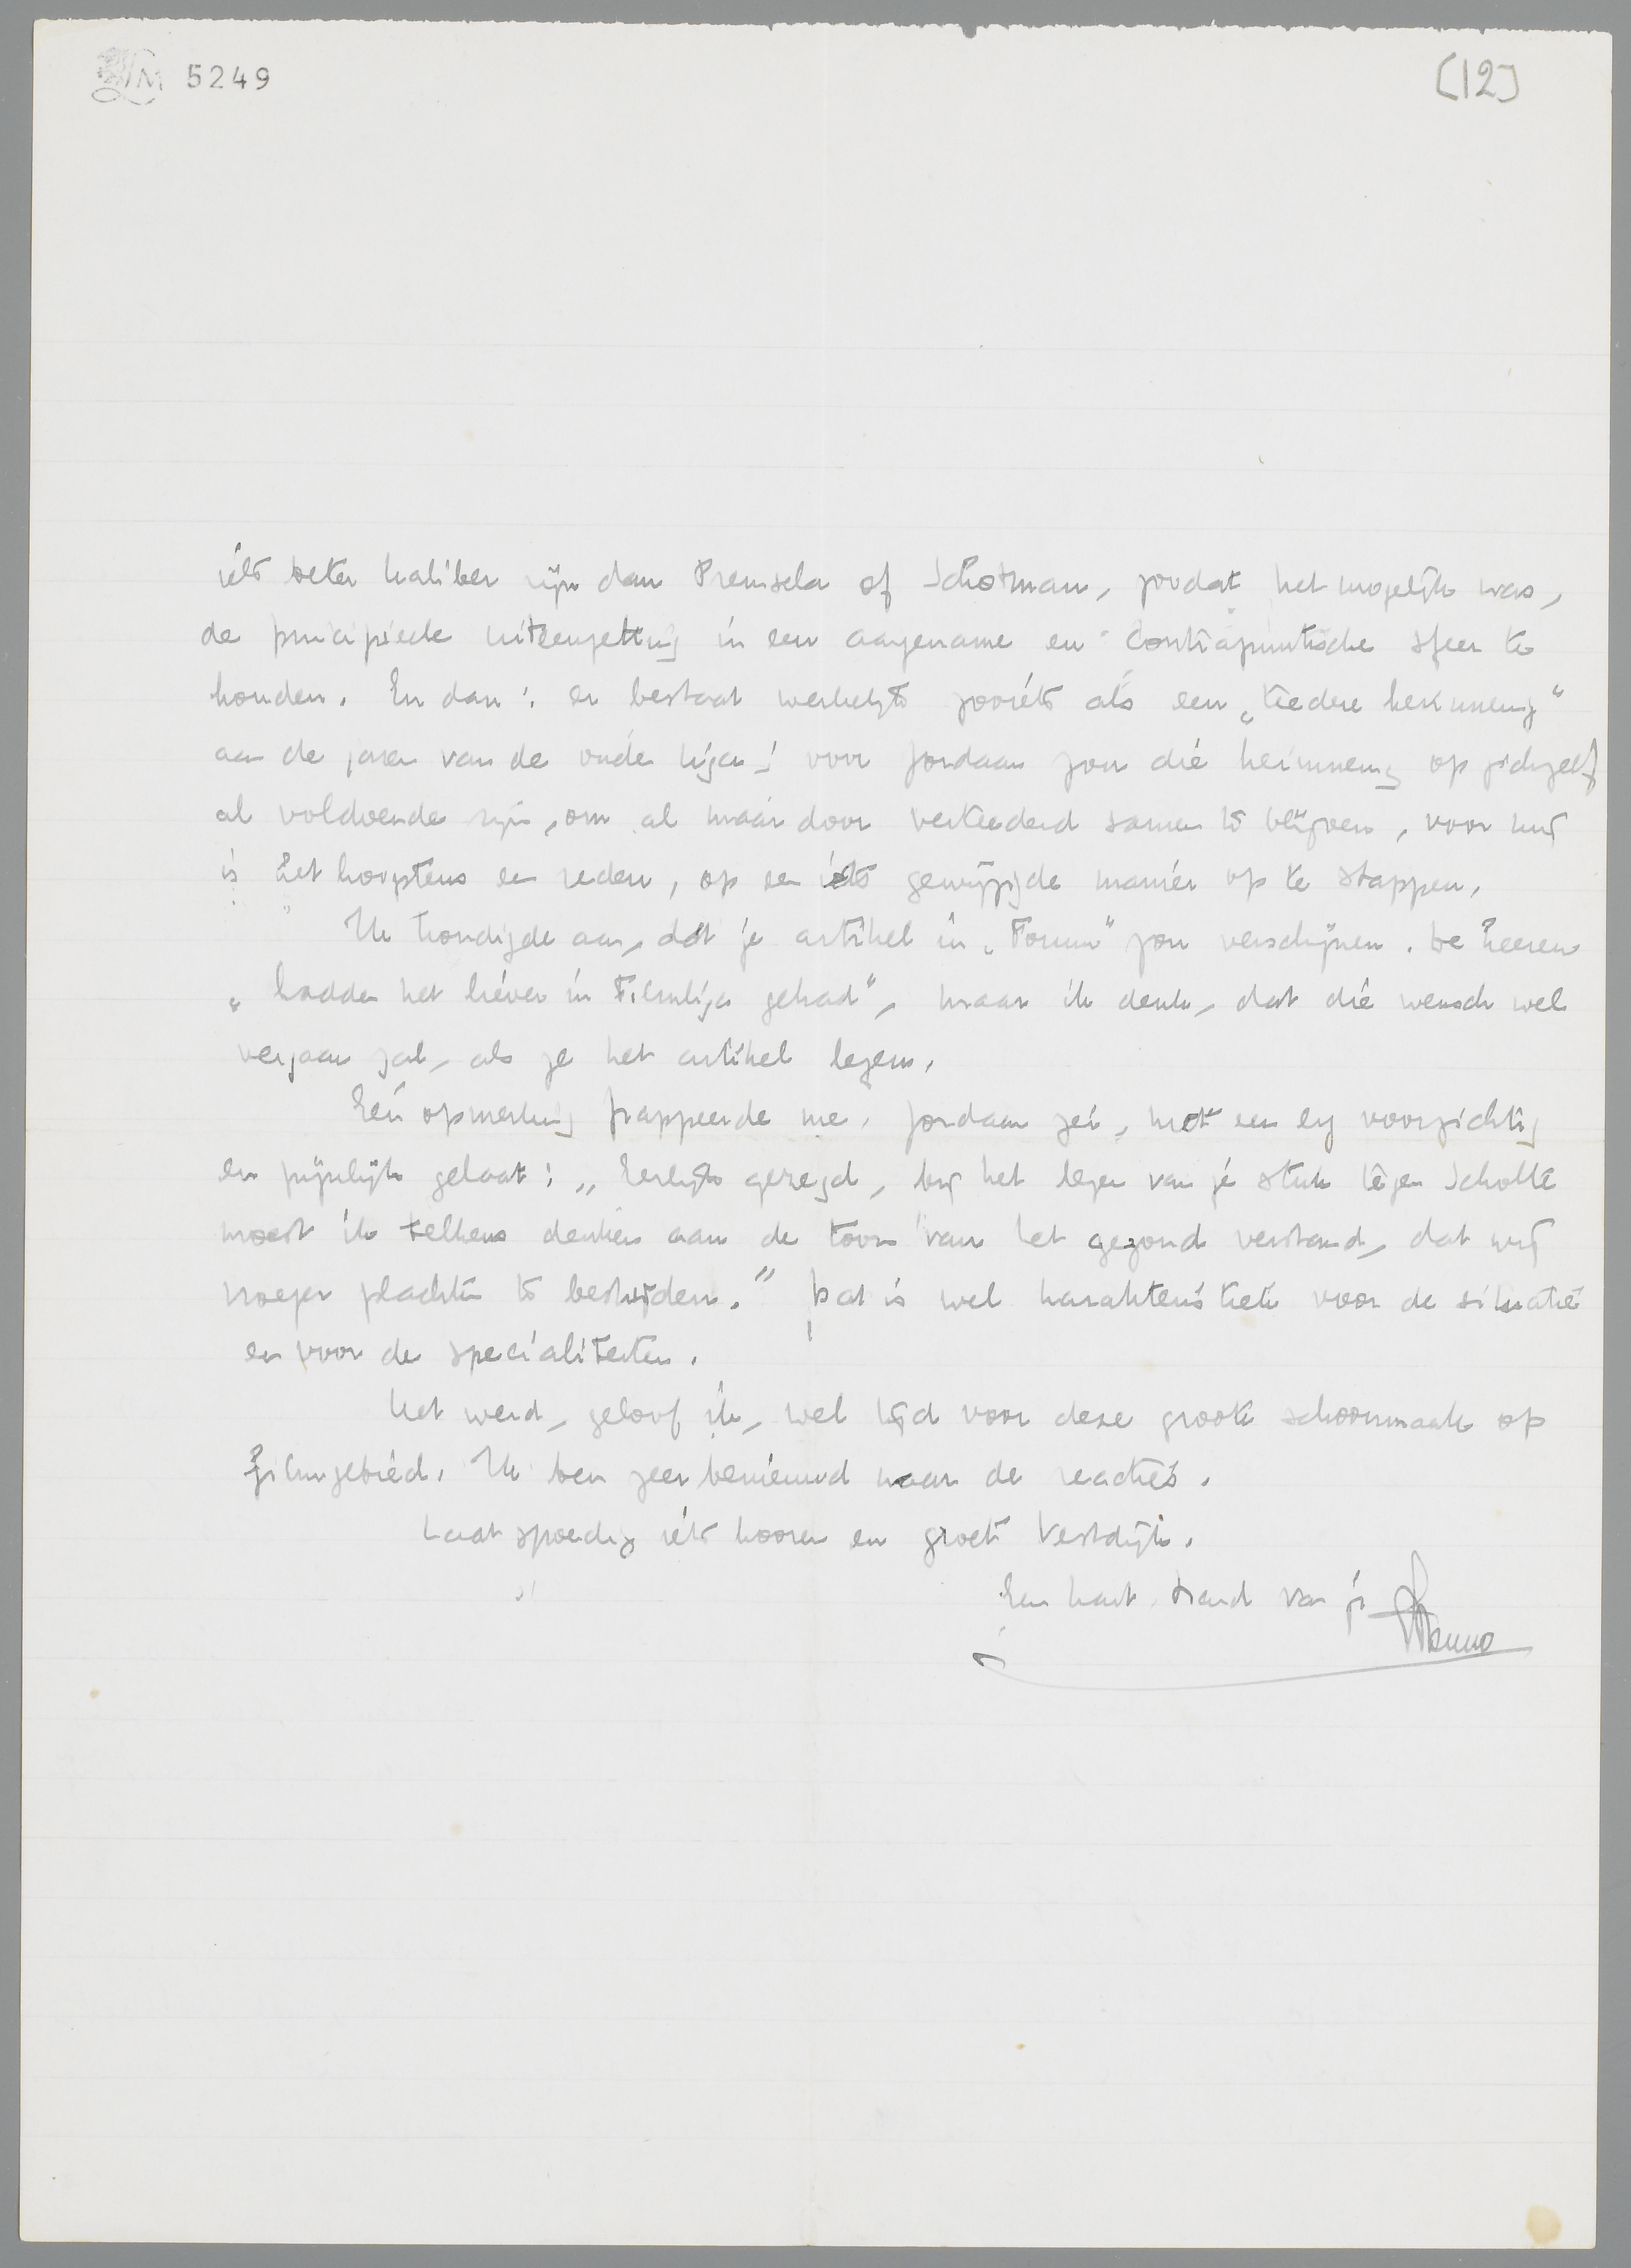 LM 5249
[12]
iets beter kaliber zijn dan Premsela of Schotman, zoodat het mogelijk was,
de principieele uiteenzetting in een aangename en contrapuntische sfeer te
houden. En dan: er bestaat werkelijk zooiets als een „teedere herinnering"
aan de jaren van de oude liga; voor Jordaan zou die herinnering op zichzelf
al voldoende zijn, om al maar door verteederd samen te blijven, voor mij
is het hoogstens een reden, op een iets gewijzigde manier op te stappen.
Ik kondigde aan, dat je artikel in „Forum" zou verschijnen. De heeren
„hadden het liever in Filmliga gehad", maar ik denk, dat die wensch wel
vergaan zal, als ze het artikel lezen.
Eén opmerking frappeerde me. Jordaan zei, met een erg voorzichtig
en pijnlijk gelaat: „Eerlijk gezegd, bij het lezen van je stuk tegen Scholte
moest ik telkens denken aan de toon van het gezond verstand, dat wij
vroeger plachten te bestrijden." Dat is wel karakteristiek voor de situatie
en voor de specialiteiten.
Het werd, geloof ik, wel tijd voor deze groote schoonmaak op
filmgebied. Ik ben zeer benieuwd naar de reacties.
Laat spoedig iets hooren en groet Vestdijk.
Een hart. hand van je
Menno